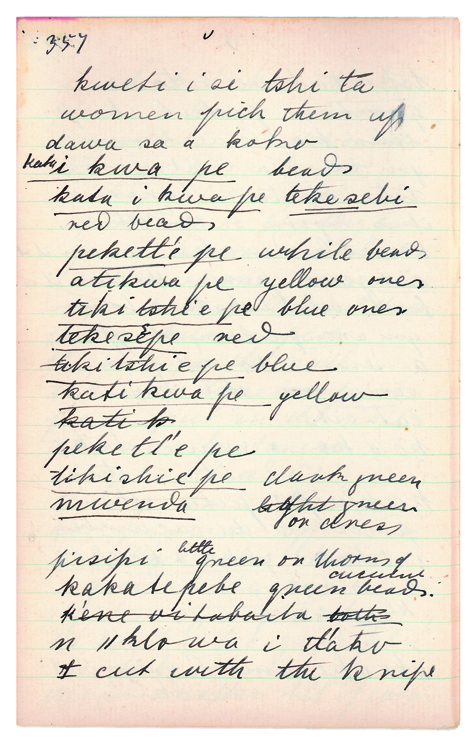 357
kweti i si tshi ta
women pick them up
dawa sa a kokro
kata i kwa pe beads
kata i kwa pe teke sebi
red beads
pekett'e pe while beads
atikwa pe yellow ones
tikitshie pe blue ones
tekesepe red
tekitshie pe blue
kati kwa pe yellow
kati k
peketl'e pe
tikishie pe dark green
mwenda light green
or dress
pisipi little green on thorns of
kakatepebe green cucumber beads.
bottle
n //klowa i tl'ako
I cut with the knife